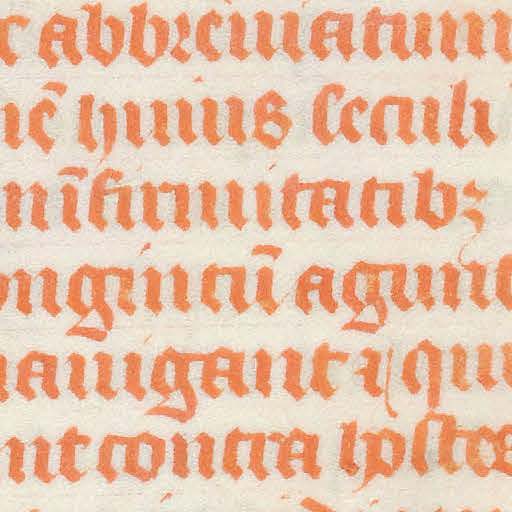 abbreuiatum
huius seculi
infirmitatibꝫ
longincū agunt
nauigant ⁊ qui
nt contra hostes